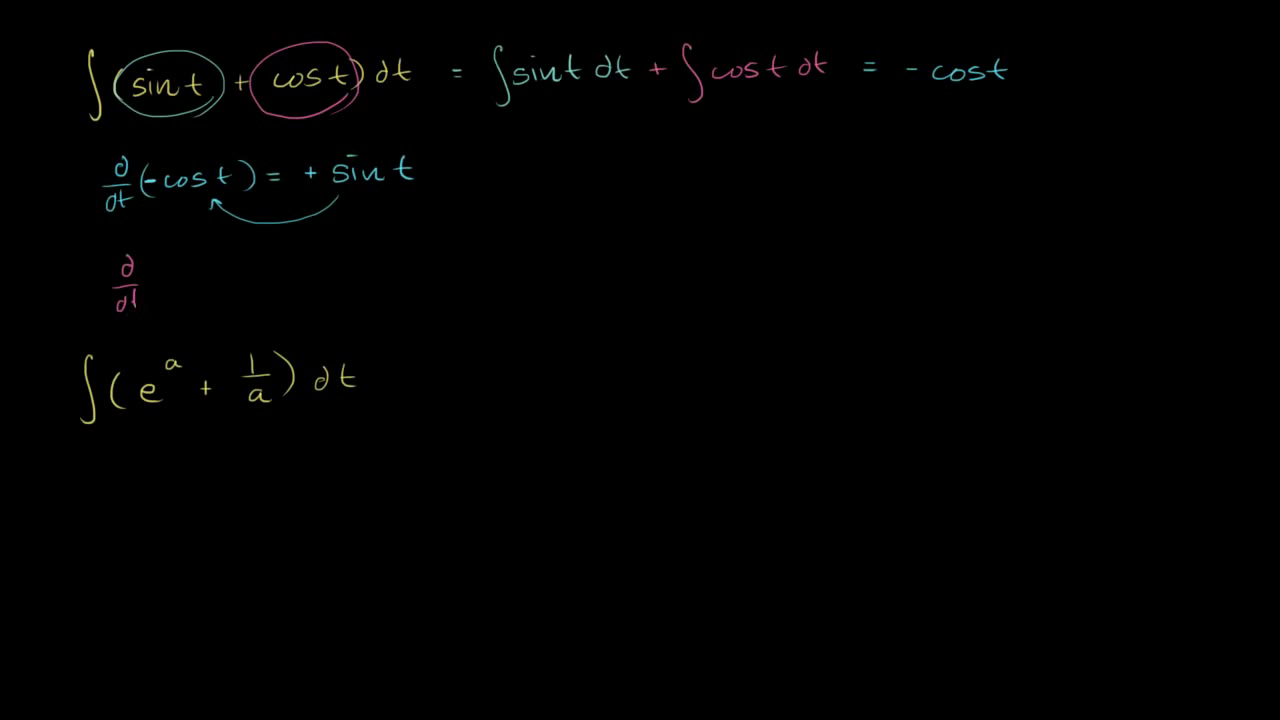 ∫(sin t + cos t) dt = ∫sin t dt + ∫cos t dt = - cos t
d/dt (-cos t) = + sin t
d/dt
∫(e^a + 1/a) dt